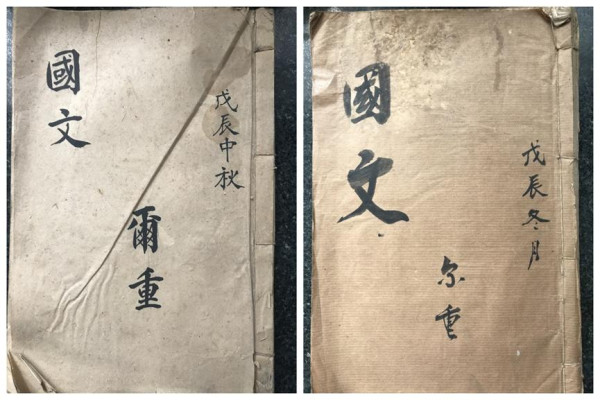 戊辰中秋
國文
爾重
戊辰冬月
國文
尔重